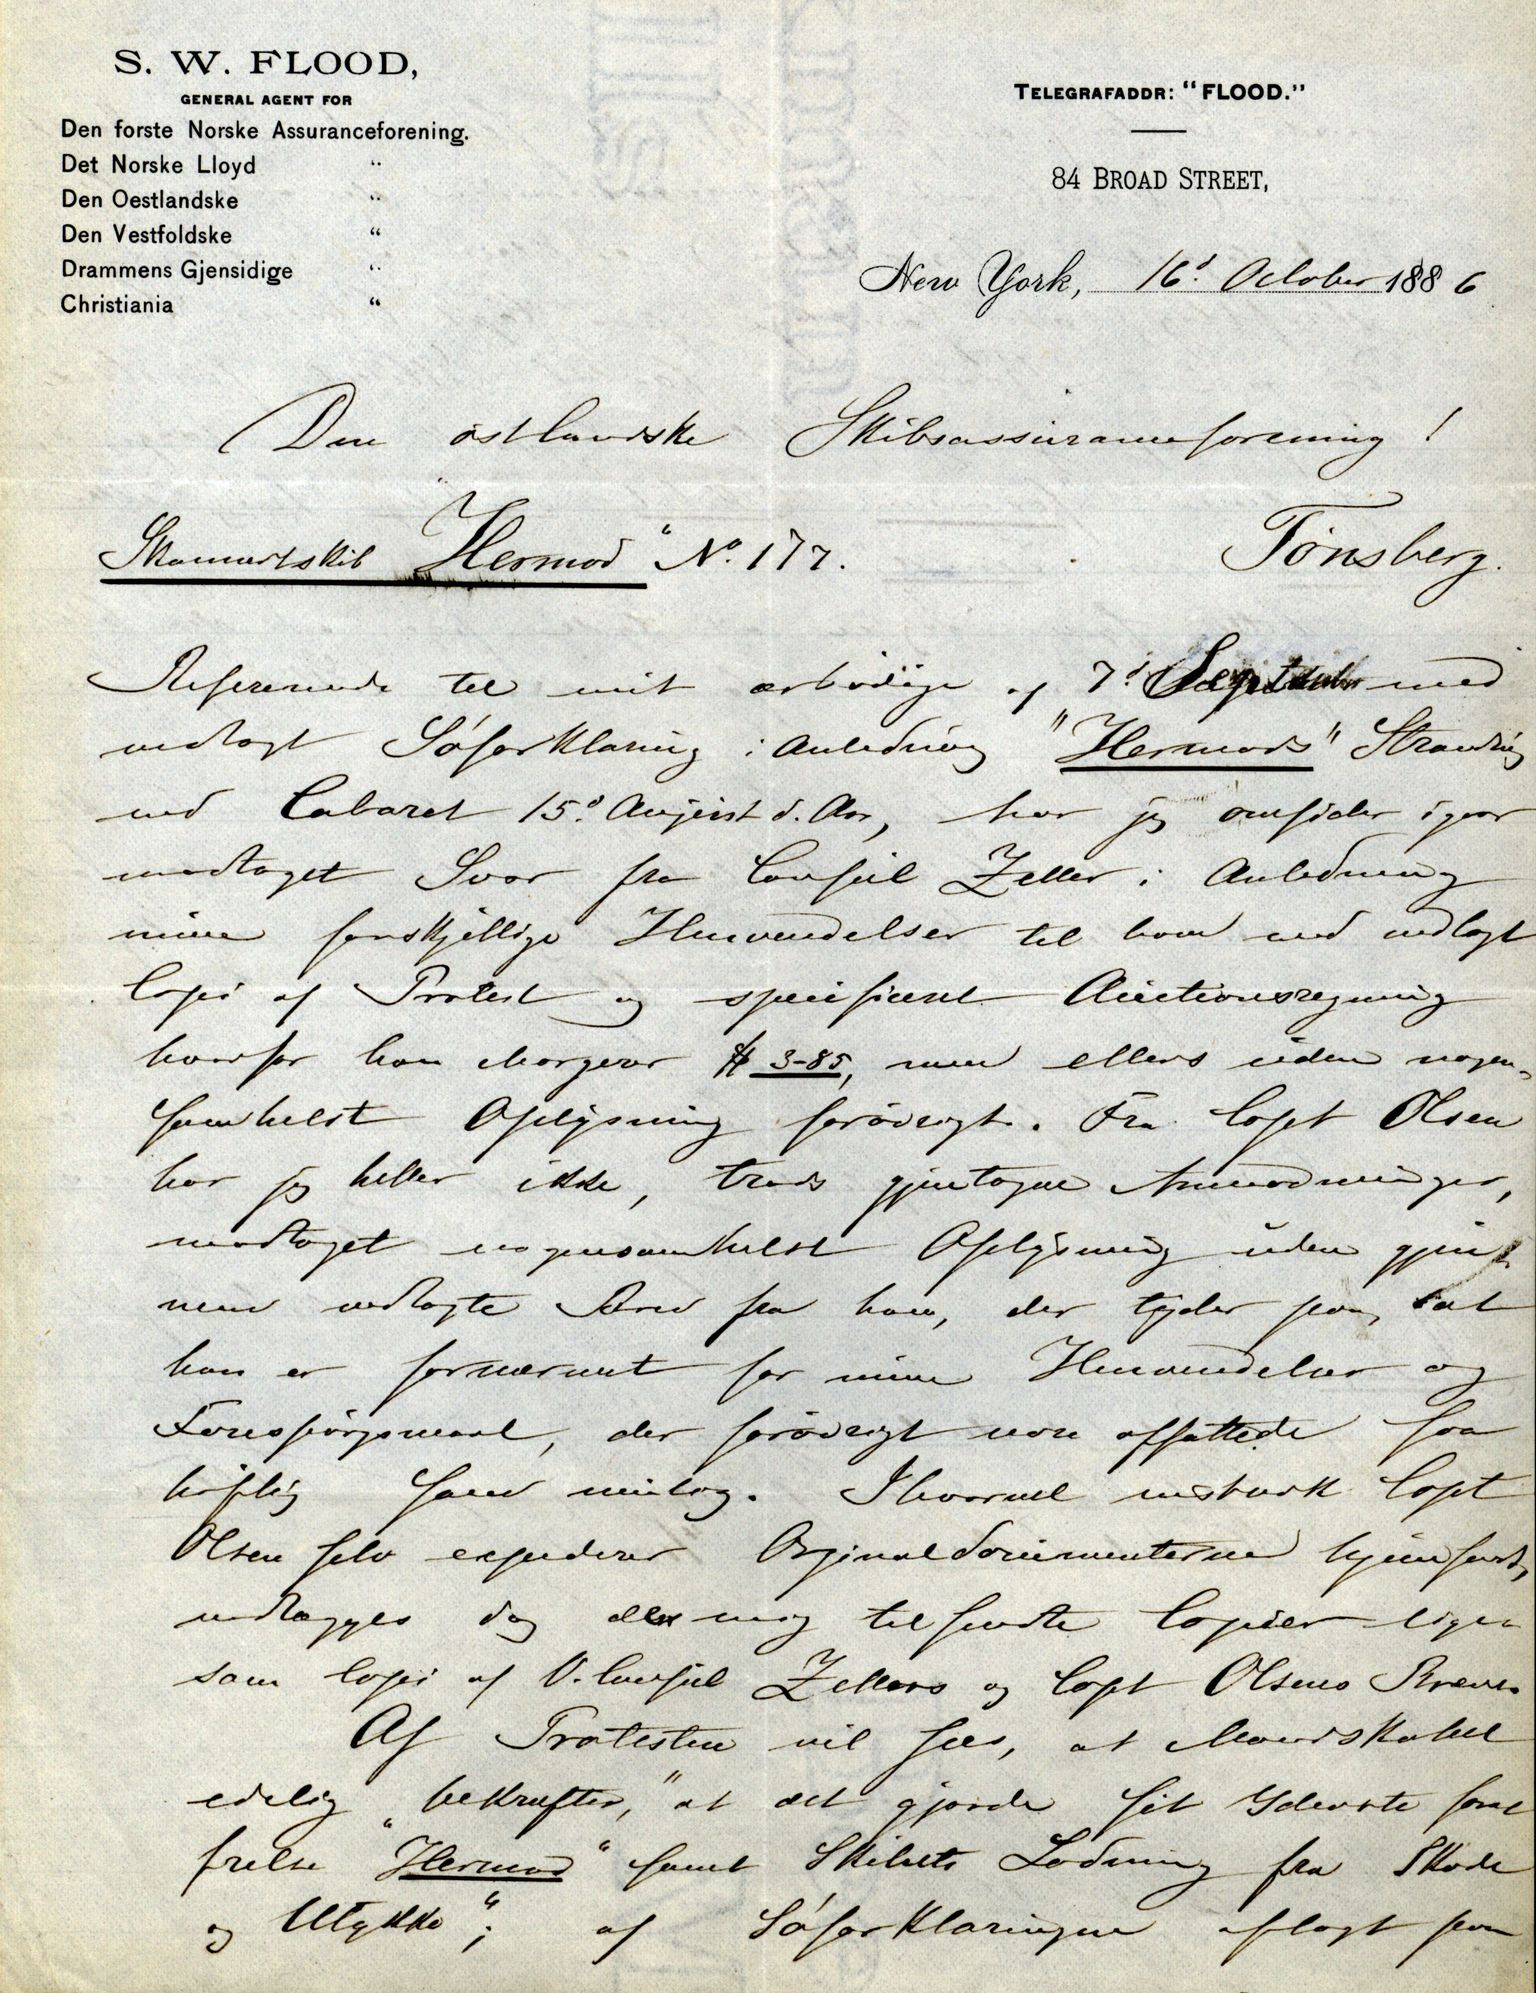 S. W. FLOOD,
GENERAL AGENT FOR
Den forste Norske Assuranceforening.
Det Norske Lloyd "
Den Oestlandske "
Den Vestfoldske "
Drammens Gjensidige "
Christiania "
TELEGRAFADDR: "FLOOD."
84 BROAD STREET,
New York, 16d October 1886
Den østlandske Skibsassuranceforening!
Skonnertskib "Hermod" No. 177.
Tønsberg.
Refererende til mit ærbødige af 7d September med
vedlagt Søforklaring i Anledning "Hermods" Stranding
ved Cabaret 15d August d. Aar, har jeg omsider igaar
modtaget Svar fra Consul Zeller i Anledning
mine forskjellige Henvendelser til ham med vedlagt
Copi af Protest og specificeret Auctionsregning
hvorfor han chargerer $ 3-85, men ellers uden nogen-
somhelst Oplysning forøvrigt. Fra Capt Olsen
har jeg heller ikke, trods gjentagne Anmodninger,
modtaget nogensomhelst Oplysning uden gjen-
nem vedlagte Brev fra ham, der tyder paa, at
han er fornærmet for mine Henvendelser og
Forespørgsmaal, der forøvrigt vare affattede saa
høflig som mulig. Ihvorvel Capt
Olsen selv expederer Orginaldocumenterne hjemsendt,
vedlægges dog de mig tilsendte Copier lige-
som Copi af V. Consul Zellers og Capt Olsens Breve.
Af Protesten vil sees, at Mandskabet
edelig "bekræfter," at det gjorde sit Yderste for at
frelse "Hermod" samt Skibets Ladning fra Skade
og Ulykke"; af Søforklaringen aflagt paa